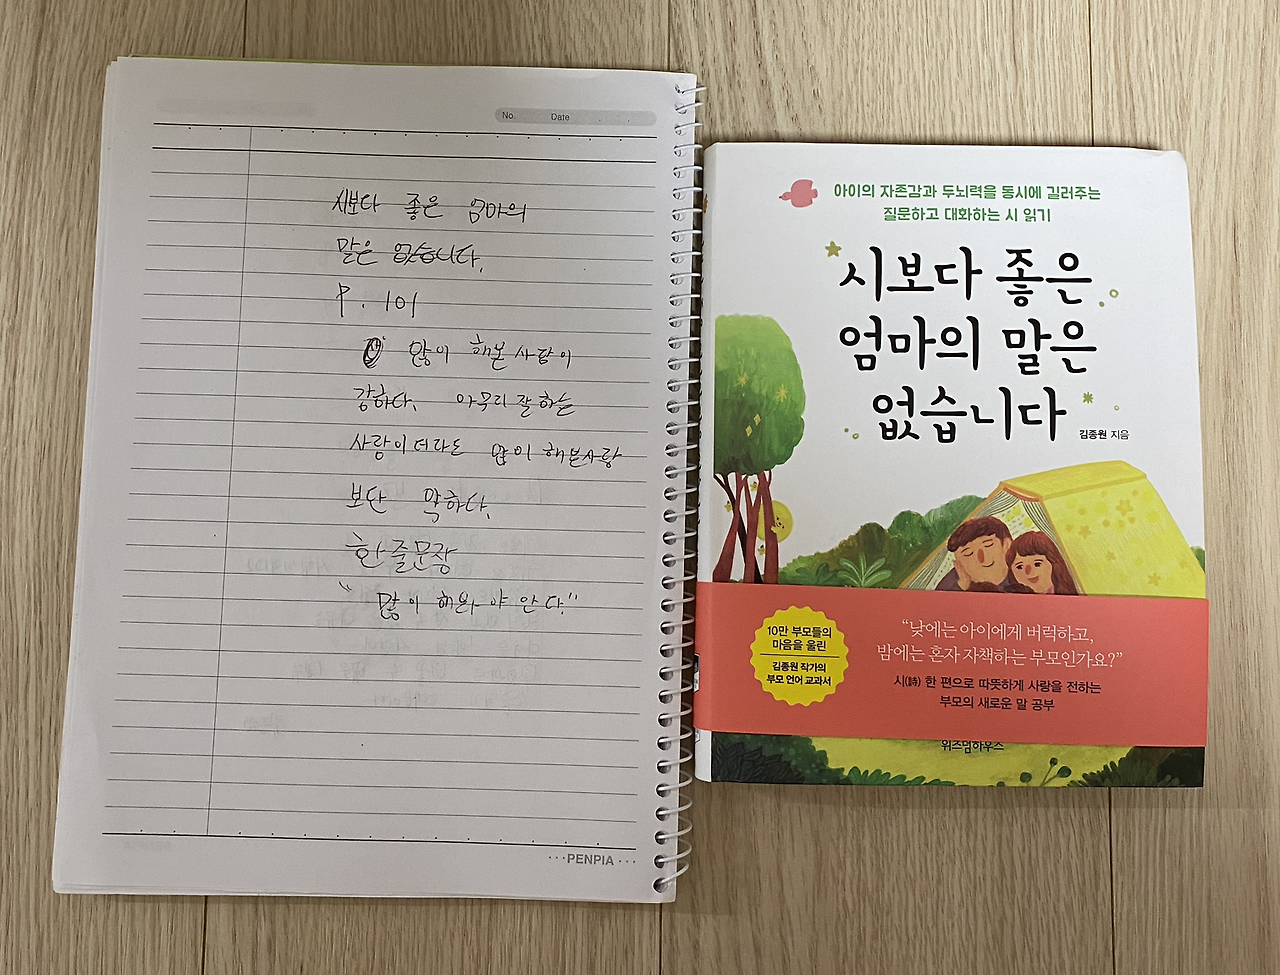 No. Date
시보다 좋은 엄마의
말은 없습니다.
P. 101
많이 해본 사람이
강하다. 아무리 잘 하는
사람이더라도 많이 해본사람
보단 약하다.
한줄문장
" 많이 해봐야 안다."
PENPIA
아이의 자존감과 두뇌력을 동시에 길러주는
질문하고 대화하는 시 읽기
시보다 좋은
엄마의 말은
없습니다
김종원 지음
10만 부모들의
마음을 울린
김종원 작가의
부모 언어 교과서
“낮에는 아이에게 버럭하고,
밤에는 혼자 자책하는 부모인가요?”
시(詩) 한 편으로 따뜻하게 사랑을 전하는
부모의 새로운 말 공부
위즈덤하우스